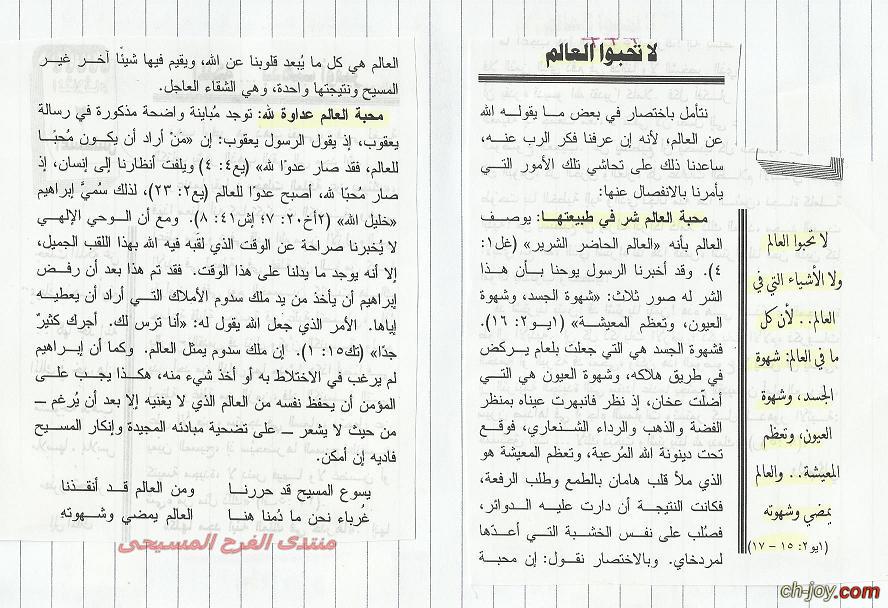 لا تحبوا العالم
نتأمل باختصار في بعض ما يقوله الله
عن العالم، لأنه إن عرفنا فكر الرب عنه،
ساعدنا ذلك على تحاشي تلك الأمور التي
يأمرنا بالانفصال عنها:
محبة العالم شر في طبيعتها: يوصف
العالم بأنه «العالم الحاضر الشرير» (غل١:
٤). وقد أخبرنا الرسول يوحنا بأن هذا
الشر له صور ثلاث: «شهوة الجسد، وشهوة
العيون، وتعظم المعيشة» (١يو٢: ١٦).
فشهوة الجسد هي التي جعلت بلعام يركض
في طريق هلاكه، وشهوة العيون هي التي
أضلّت عخان، إذ نظر فانبهرت عيناه بمنظر
الفضة والذهب والرداء الشنعاري، فوقع
تحت دينونة الله المُرعبة، وتعظم المعيشة هو
الذي ملأ قلب هامان بالطمع وطلب الرفعة،
فكانت النتيجة أن دارت عليه الدوائر،
فصُلب على نفس الخشبة التي أعدّها
لمردخاي. وبالاختصار نقول: إن محبة
لا تحبوا العالم
ولا الأشياء التي في
العالم.. لأن كل
ما في العالم: شهوة
الجسد، وشهوة
العيون، وتعظم
المعيشة.. والعالم
يمضي وشهوته
(١يو٢: ١٥ – ١٧)
العالم هي كل ما يُبعد قلوبنا عن الله، ويقيم فيها شيئًا آخر غير
المسيح ونتيجتها واحدة، وهي الشقاء العاجل.
محبة العالم عداوة لله: توجد مُباينة واضحة مذكورة في رسالة
يعقوب، إذ يقول الرسول يعقوب: إن «مَنْ أراد أن يكون مُحبًا
للعالم، فقد صار عدوًا لله» (يع٤: ٤) ويلفت أنظارنا إلى إنسان، إذ
صار مُحبًا لله، أصبح عدوًا للعالم (يع٢: ٢٣)، لذلك سُميَّ إبراهيم
«خليل الله» (٢أخ٢٠: ٧؛ إش٤١: ٨). ومع أن الوحي الإلهي
لا يُخبرنا صراحة عن الوقت الذي لقَّبه فيه الله بهذا اللقب الجميل،
إلا أنه يوجد ما يدلنا على هذا الوقت. فقد تم هذا بعد أن رفض
إبراهيم أن يأخذ من يد ملك سدوم الأملاك التي أراد أن يعطيه
إياها. الأمر الذي جعل الله يقول له: «أنا ترس لك. أجرك كثيرٌ
جدًا» (تك١٥: ١). إن ملك سدوم يمثل العالم. وكما أن إبراهيم
لم يرغب في الاختلاط به أو أخذ شيء منه، هكذا يجب على
المؤمن أن يحفظ نفسه من العالم الذي لا يغنيه إلا بعد أن يُرغم ــ
من حيث لا يشعر ــ على تضحية مبادئه المجيدة وإنكار المسيح
فاديه إن أمكن.
يسوع المسيح قد حررنا ومن العالم قد أنقذنا
غُرباء نحن ما دُمنا هنا العالم يمضي وشهوته
منتدى الفرح المسيحى
ch-joy.com